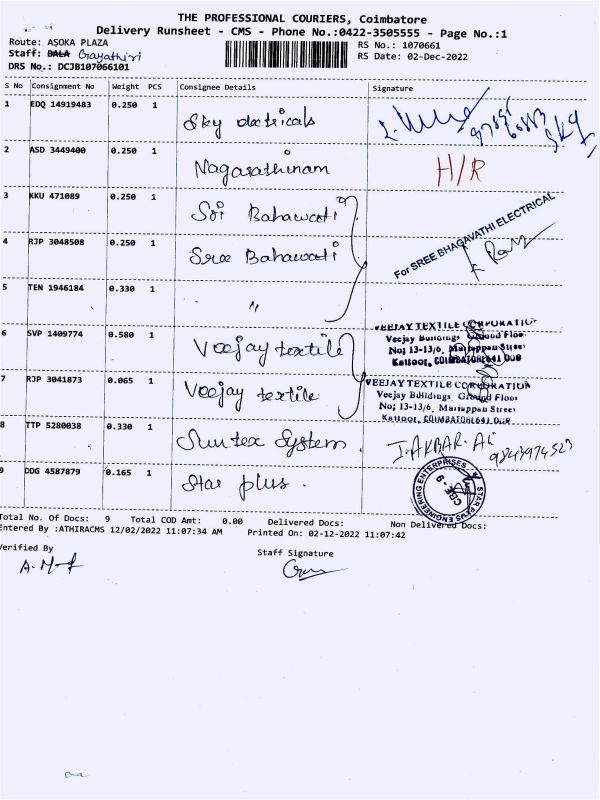 THE PROFESSIONAL COURIERS, Coimbatore
Delivery Runsheet - CMS - Phone No.:0422-3505555 - Page No.:1
Route: ASOKA PLAZA
RS No.: 1070661
Staff: BALA Gayathiri
RS Date: 02-Dec-2022
DRS No.: DCJB107066101
S No Consignment No Weight PCS Consignee Details Signature
1 EDQ 14919483 0.250 1 Sky electricals
SKY
2 ASD 3449400 0.250 1 Nagarathinam H/R
3 KKU 471089 0.250 1 Sri Bahawati
For SREE BHAGAVATHI ELECTRICAL
4 RJP 3048508 0.250 1 Sree Bahawati
5 TEN 1946184 0.330 1 "
6 SVP 1409774 0.580 1 Veejay textile
VEEJAY TEXTILE CORPORATION
Veejay Buildings Ground Floor
No; 13-13/6, Mariappan Street
Kattoor, COIMBATORE 641 009
7 RJP 3041873 0.065 1 Veejay textile
VEEJAY TEXTILE CORPORATION
Veejay Buildings, Ground Floor
No; 13-13/6, Mariappan Street
Kattoor, COIMBATORE 641 009
8 TTP 5280038 0.330 1 Suntex System. I. AKBAR. Ali
9843974523
9 DDG 4587879 0.165 1 Star plus.
STAR PLUS ENGINEERING ENTERPRISES
CBE. 9
Total No. Of Docs: 9 Total COD Amt: 0.00 Delivered Docs: Non Delivered Docs:
Entered By :ATHIRACMS 12/02/2022 11:07:34 AM Printed On: 02-12-2022 11:07:42
Verified By
Staff Signature